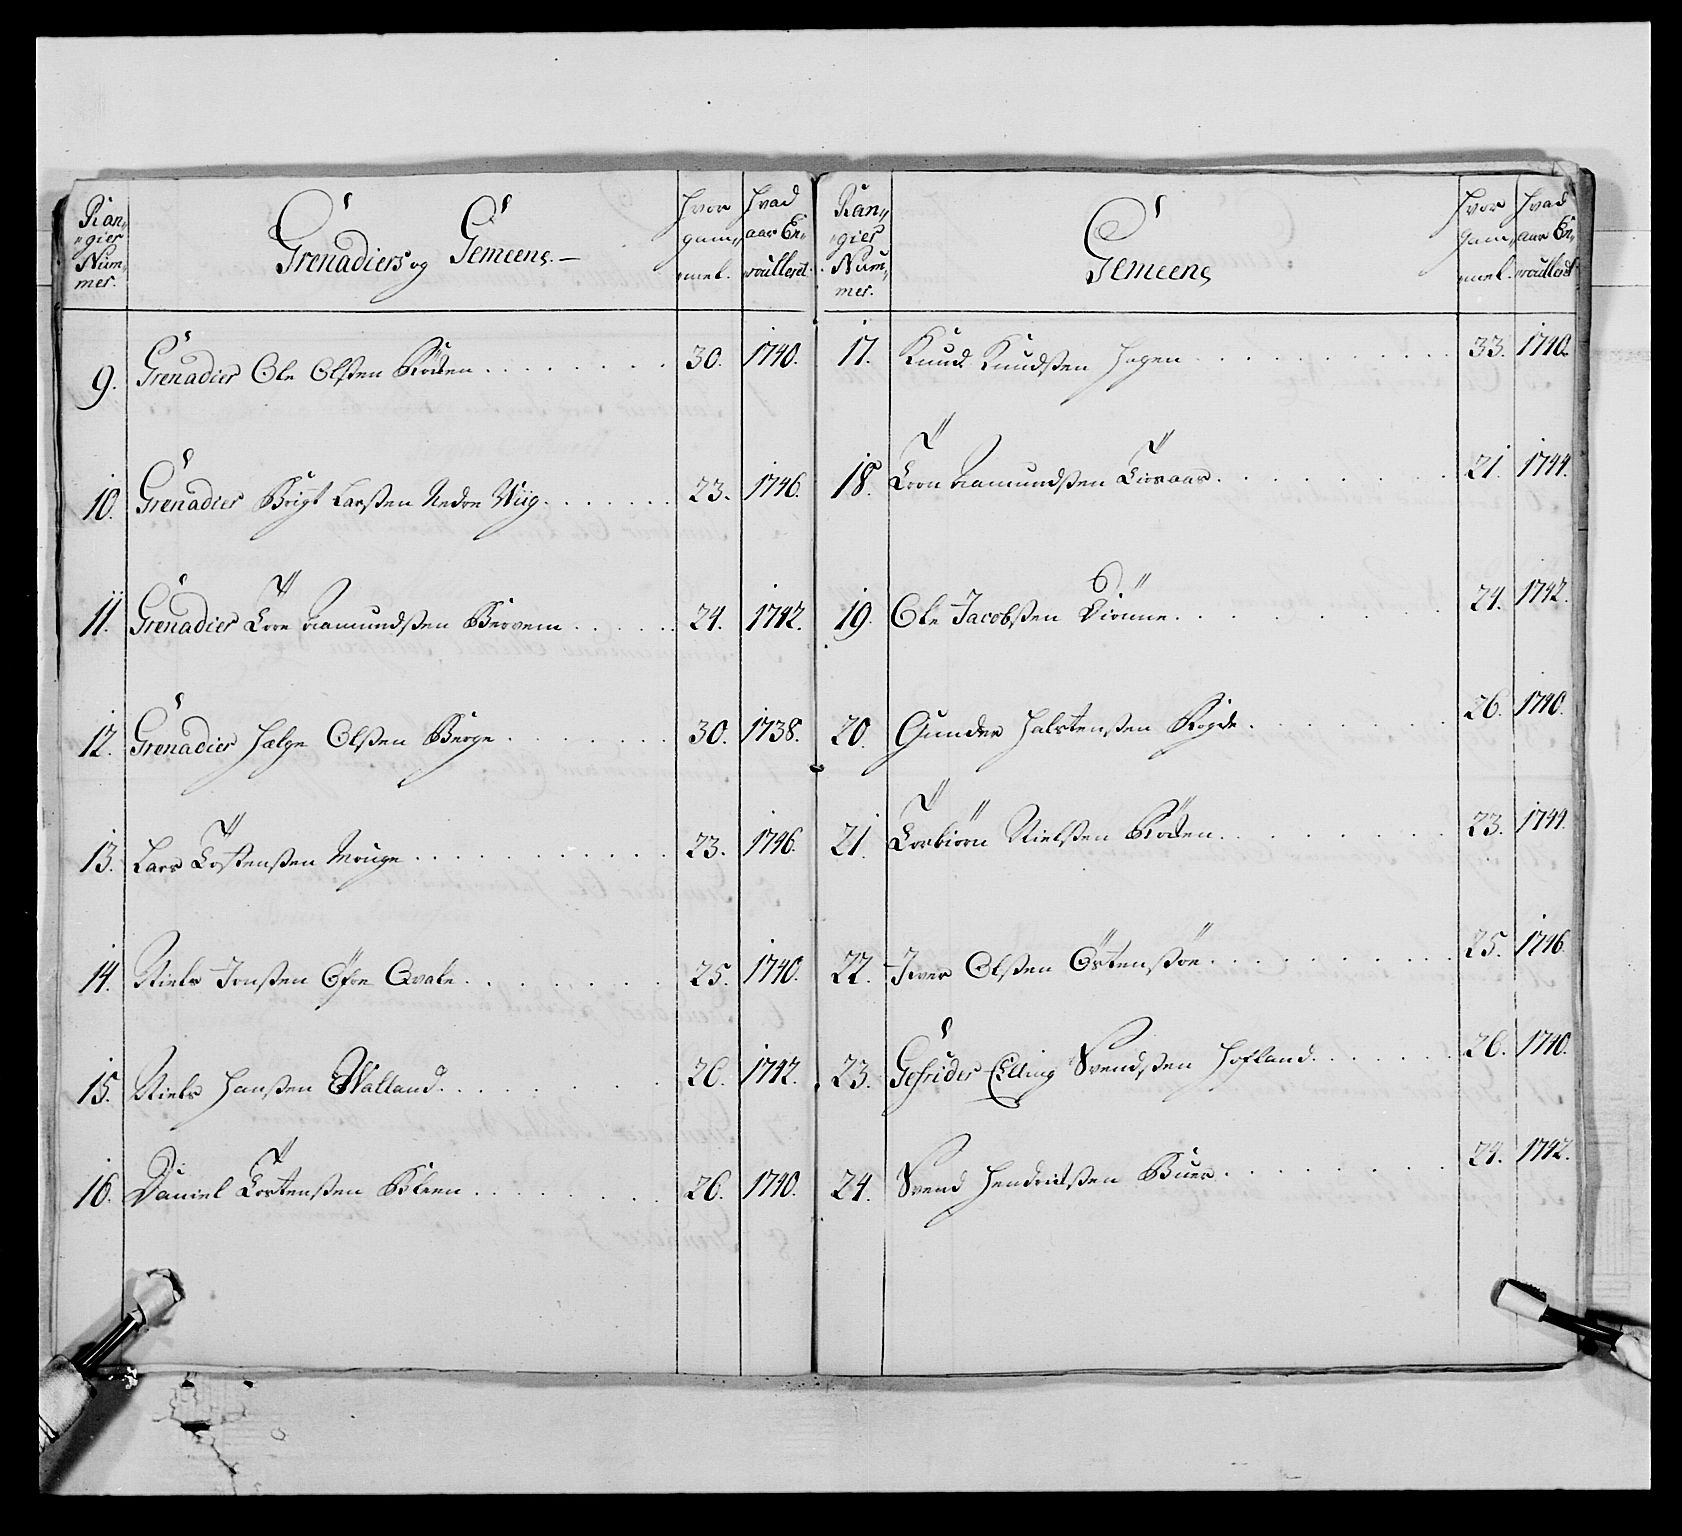 Ran„
„gier
Num„
mer.
Grenadiers og Gemeene.
Hvor
gam„
mel.
Hvad
aar En„
roullerdt.
9. Grenadier Ole Olssen Röden 30. 1740.
10. Grenadier Brigt Larssen Nedre Wiig 23. 1746.
11. Grenadier Tore Aamundssen Bervem 24. 1742.
12. Grenadier Helge Olssen Berge 30. 1738.
13. Lars Tostenssen Mouge 23. 1746.
14. Niels Jonssen Öfre Qvale 25. 1740.
15. Niels Hanssen Walland 26. 1742.
16. Daniel Tostenssen Bleen 26. 1740.
Ran„
„gier
Num„
mer.
Gemeene
Hvor
gam„
mel.
Hvad
aar En„
roullerdt.
17. Knud Knudssen Hagen 33. 1740.
18. Tron Aamundssen 21. 1744.
19. Ole Jacobssen Diönne 24. 1742.
20. Gunder Halstenssen Rogde 26. 1740.
21. Torbiörn Nielssen Röden 23. 1744.
22. Iver Olssen Östenssöe 25. 1746.
23. Gefrider Elling Svendssen Hofland 26. 1740.
24. Svend Hendrichssen Buer 24. 1742.